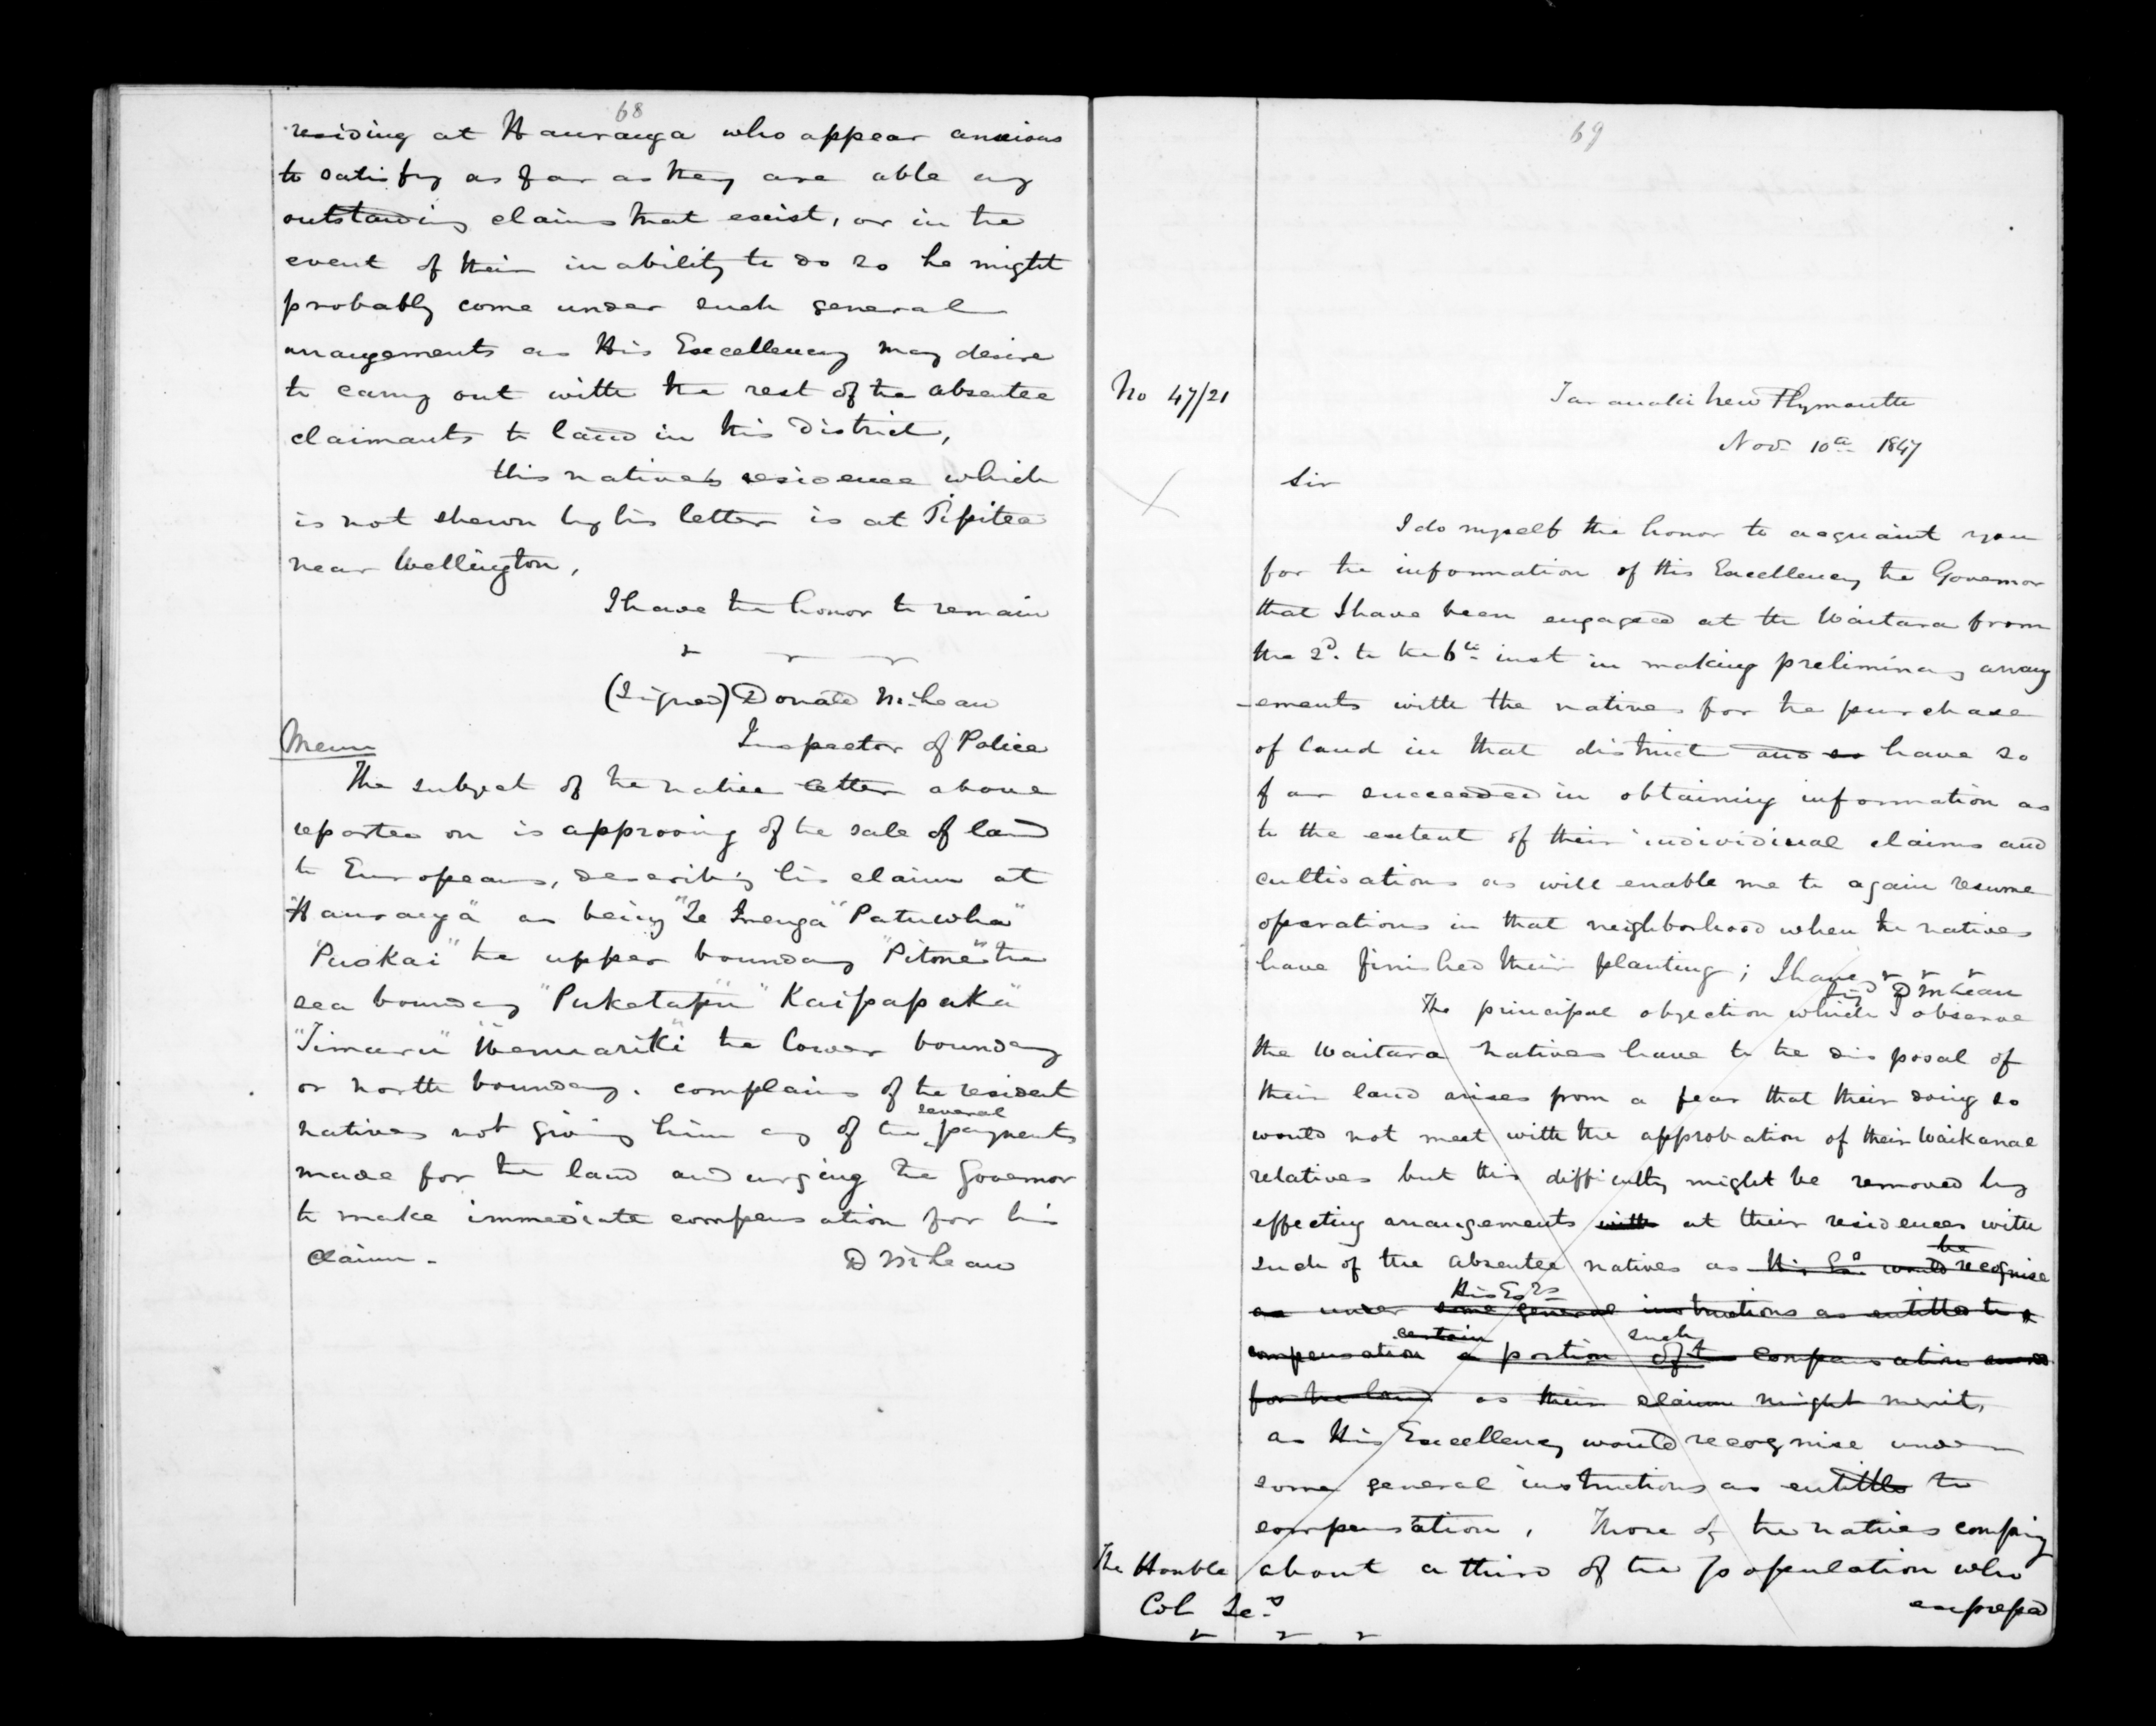 68
residing at Hauranga who appear anxious
to satisfy as far as they are able any
outstanding claims that exist, or in the
event of their inability to do so he might
probably come under such general
arrangements as His Excellency may desire
to carry out with the rest of the absentee
claimants to land in this District,
this natives residence which
is not shewn by his letter is at Pipitea
near Wellington,
I have the honor to remain
(Signed) Donald McLean
Inspector of Police
Mem
The subject of the native letter above
reported on is approving of the sale of land
to Europeans, describing his claim at
"Hauranga" as being "Te Inenga" "Patuwha"
"Puokai" the upper boundary "Pitone" the
sea boundary "Puketapu" "Kaipapaka"
"Timaru" "Wenuariki" the lower boundary
or north boundary. complains of the resident
natives not giving him any of the several payments
made for the land and urging the Governor
to make immediate compensation for his
claim.
D McLean
69
No 47/21
Taranaki New Plymouth
Nov 10th 1847
Sir
I do myself the honor to acquaint you
for the information of His Excellency the Governor
that I have been engaged at the Waitara from
the 2d. to the 6th inst in making preliminary arrang
-ements with the natives for the purchase
of land in that district and so have so
far succeeded in obtaining information as
to the extent of their individual claims and
cultivations as will enable me to again resume
operations in that neighborhood when the natives
have finished their planting; I have
Sigd D McLean
The principal objection which I observe
the Waitara natives have to the disposal of
their land arises from a fear that their doing so
would not meet with the approbation of their Waikanae
relatives but this difficulty might be removed by
effecting arrangements with at their residences with
he
such of the absentee natives as His Ex would recognise
His Exs
as under some general instructions as entitled to a
certain such
compensation a portion of the compensation
for the land as their claim might merit,
as His Excellency would recognise under
some general instructions as entitled to
compensation, Those of the natives comprising
about a third of the population who
expressed
The Honble
Col Sec